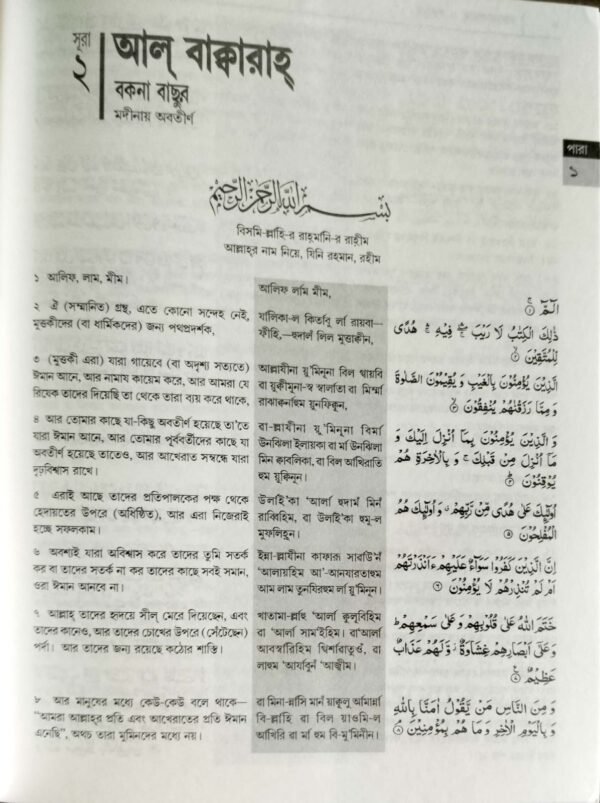 সূরা
২
আল্ বাক্কারাহ্
বকনা বাছুর
মদীনায় অবতীর্ণ
পারা
১
بِسْمِ اللهِ الرَّحْمٰنِ الرَّحِيْمِ
বিসমি-ল্লাহি-র রাহ্‌মানি-র রাহীম
আল্লাহ্‌র নাম নিয়ে, যিনি রহমান, রহীম
১ আলিফ, লাম, মীম।
২ ঐ (সম্মানিত) গ্রন্থ, এতে কোনো সন্দেহ নেই,
মুত্তকীদের (বা ধার্মিকদের) জন্য পথপ্রদর্শক,
৩ (মুত্তকী এরা) যারা গায়েবে (বা অদৃশ্য সত্যতে)
ঈমান আনে, আর নামায কায়েম করে, আর আমরা যে
রিযেক তাদের দিয়েছি তা থেকে তারা ব্যয় করে থাকে,
৪ আর তোমার কাছে যা-কিছু অবতীর্ণ হয়েছে তা'তে
যারা ঈমান আনে, আর তোমার পূর্ববর্তীদের কাছে যা
অবতীর্ণ হয়েছে তাতেও, আর আখেরাত সম্বন্ধে যারা
দৃঢ়বিশ্বাস রাখে।
৫ এরাই আছে তাদের প্রতিপালকের পক্ষ থেকে
হেদায়তের উপরে (অধিষ্ঠিত), আর এরা নিজেরাই
হচ্ছে সফলকাম।
৬ অবশ্যই যারা অবিশ্বাস করে তাদের তুমি সতর্ক
কর বা তাদের সতর্ক না কর তাদের কাছে সবই সমান,
ওরা ঈমান আনবে না।
৭ আল্লাহ্ তাদের হৃদয়ে সীল্ মেরে দিয়েছেন, এবং
তাদের কানেও, আর তাদের চোখের উপরে (সেঁটেছেন)
পর্দা। আর তাদের জন্য রয়েছে কঠোর শাস্তি।
৮ আর মানুষের মধ্যে কেউ-কেউ বলে থাকে—
“আমরা আল্লাহ্‌র প্রতি এবং আখেরাতের প্রতি ঈমান
এনেছি”, অথচ তারা মুমিনদের মধ্যে নয়।
আলিফ লাম মীম,
যালিকা-ল কিতাবু লা রায়বা—
ফীহি,—হুদাল লিল মুত্তাকীন,
আল্লাযীনা য়ু'মিনূনা বিল গায়বি
বা য়ুকীমূনা-স্ব স্বালাতা বা মিম্মা
রাঝাক্কনাহুম য়ুনফিকূন,
বা-ল্লাযীনা য়ু'মিনূনা বিমা
উনঝিলা ইলায়কা বা মা উনঝিলা
মিন ক্বাবলিকা, বা বিল আখিরাতি
হুম য়ুক্বিনূন।
উলাই'কা 'আলা হুদাম মিন
রাব্বিহিম, বা উলাই'কা হুমু-ল
মুফলিহূন।
ইন্না-ল্লাযীনা কাফারূ সাবাউ'ন
'আলায়হিম আ'-আনযারতাহুম
আম লাম তুনযিরহুম লা য়ু'মিনূন।
খাতামা-ল্লাহু 'আলা ক্বুলূবিহিম
বা 'আলা সাম'ইহিম। বা'আলা
আবস্বারিহিম ঘিশাবাতুওঁ, বা
লাহুম 'আযাবুন 'আজীম।
বা মিনা-ন্নাসি মান য়াকূলু আমান্না
বি-ল্লাহি বা বিল য়াওমি-ল
আখিরি বা মা হুম বি-মু'মিনীন।
الٓمّٓ
ذٰلِكَ الْكِتٰبُ لَا رَيْبَ ۛ فِيْهِ ۛ هُدًى
لِّلْمُتَّقِيْنَ
الَّذِيْنَ يُؤْمِنُوْنَ بِالْغَيْبِ وَ يُقِيْمُوْنَ الصَّلٰوةَ
وَ مِمَّا رَزَقْنٰهُمْ يُنْفِقُوْنَ
وَ الَّذِيْنَ يُؤْمِنُوْنَ بِمَآ اُنْزِلَ اِلَيْكَ وَ
مَآ اُنْزِلَ مِنْ قَبْلِكَ ۚ وَ بِالْاٰخِرَةِ هُمْ
يُوْقِنُوْنَ
اُولٰٓئِكَ عَلٰى هُدًى مِّنْ رَّبِّهِمْ ۗ وَ اُولٰٓئِكَ هُمُ
الْمُفْلِحُوْنَ
اِنَّ الَّذِيْنَ كَفَرُوْا سَوَآءٌ عَلَيْهِمْ ءَاَنْذَرْتَهُمْ
اَمْ لَمْ تُنْذِرْهُمْ لَا يُؤْمِنُوْنَ
خَتَمَ اللّٰهُ عَلٰى قُلُوْبِهِمْ وَ عَلٰى سَمْعِهِمْ ؕ
وَ عَلٰٓى اَبْصَارِهِمْ غِشَاوَةٌ ۫ وَّ لَهُمْ عَذَابٌ
عَظِيْمٌ
وَ مِنَ النَّاسِ مَنْ يَّقُوْلُ اٰمَنَّا بِاللّٰهِ
وَ بِالْيَوْمِ الْاٰخِرِ وَ مَا هُمْ بِمُؤْمِنِيْنَ